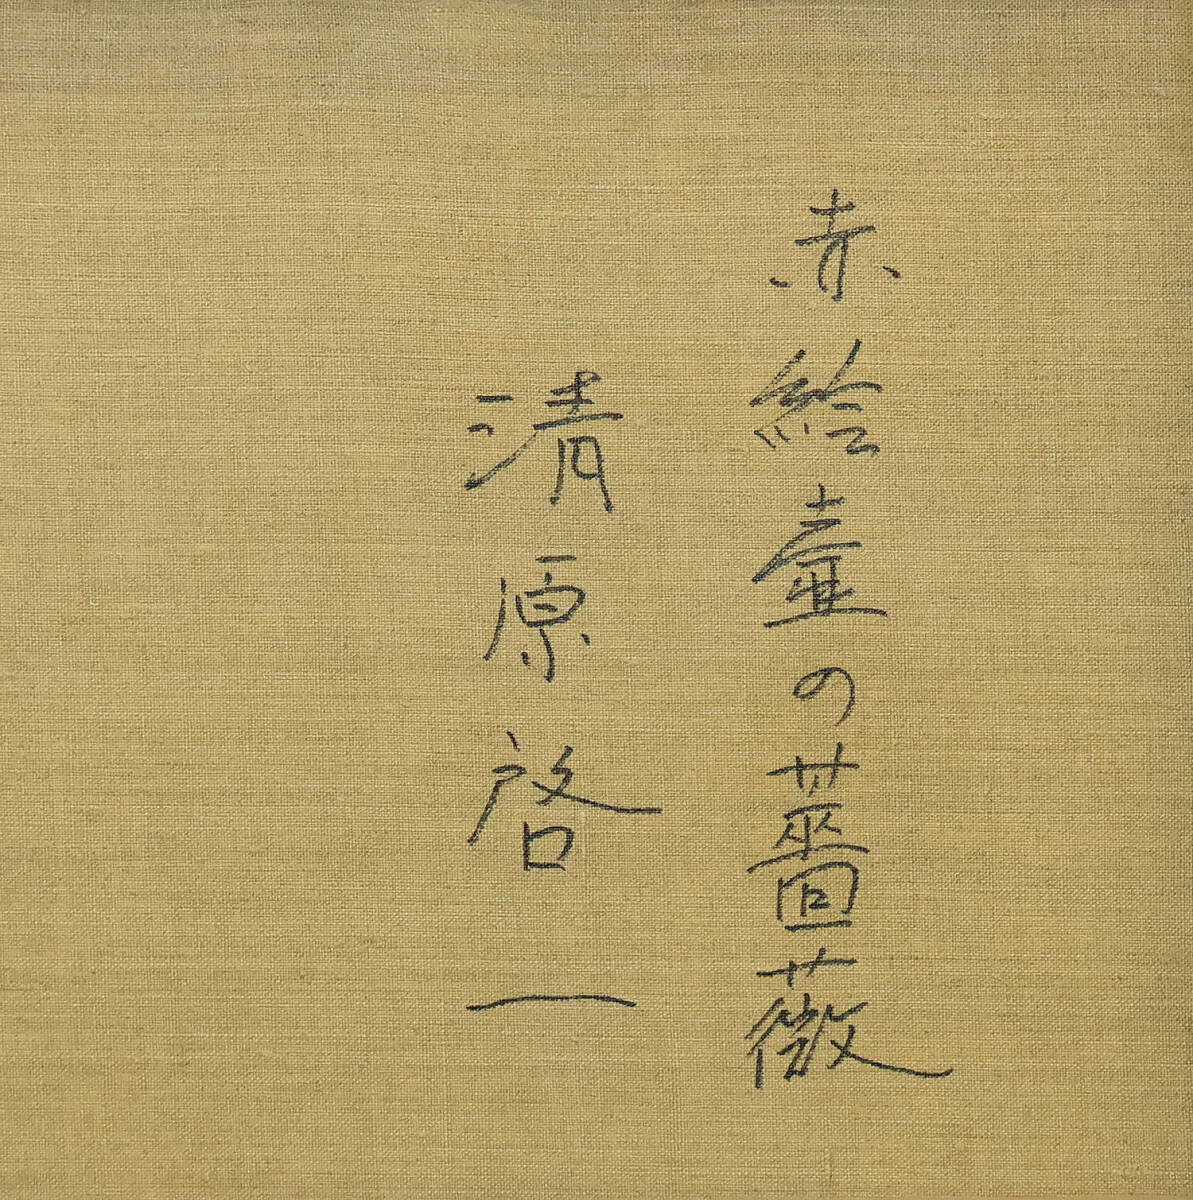 赤絵壷の薔薇
清原啓一